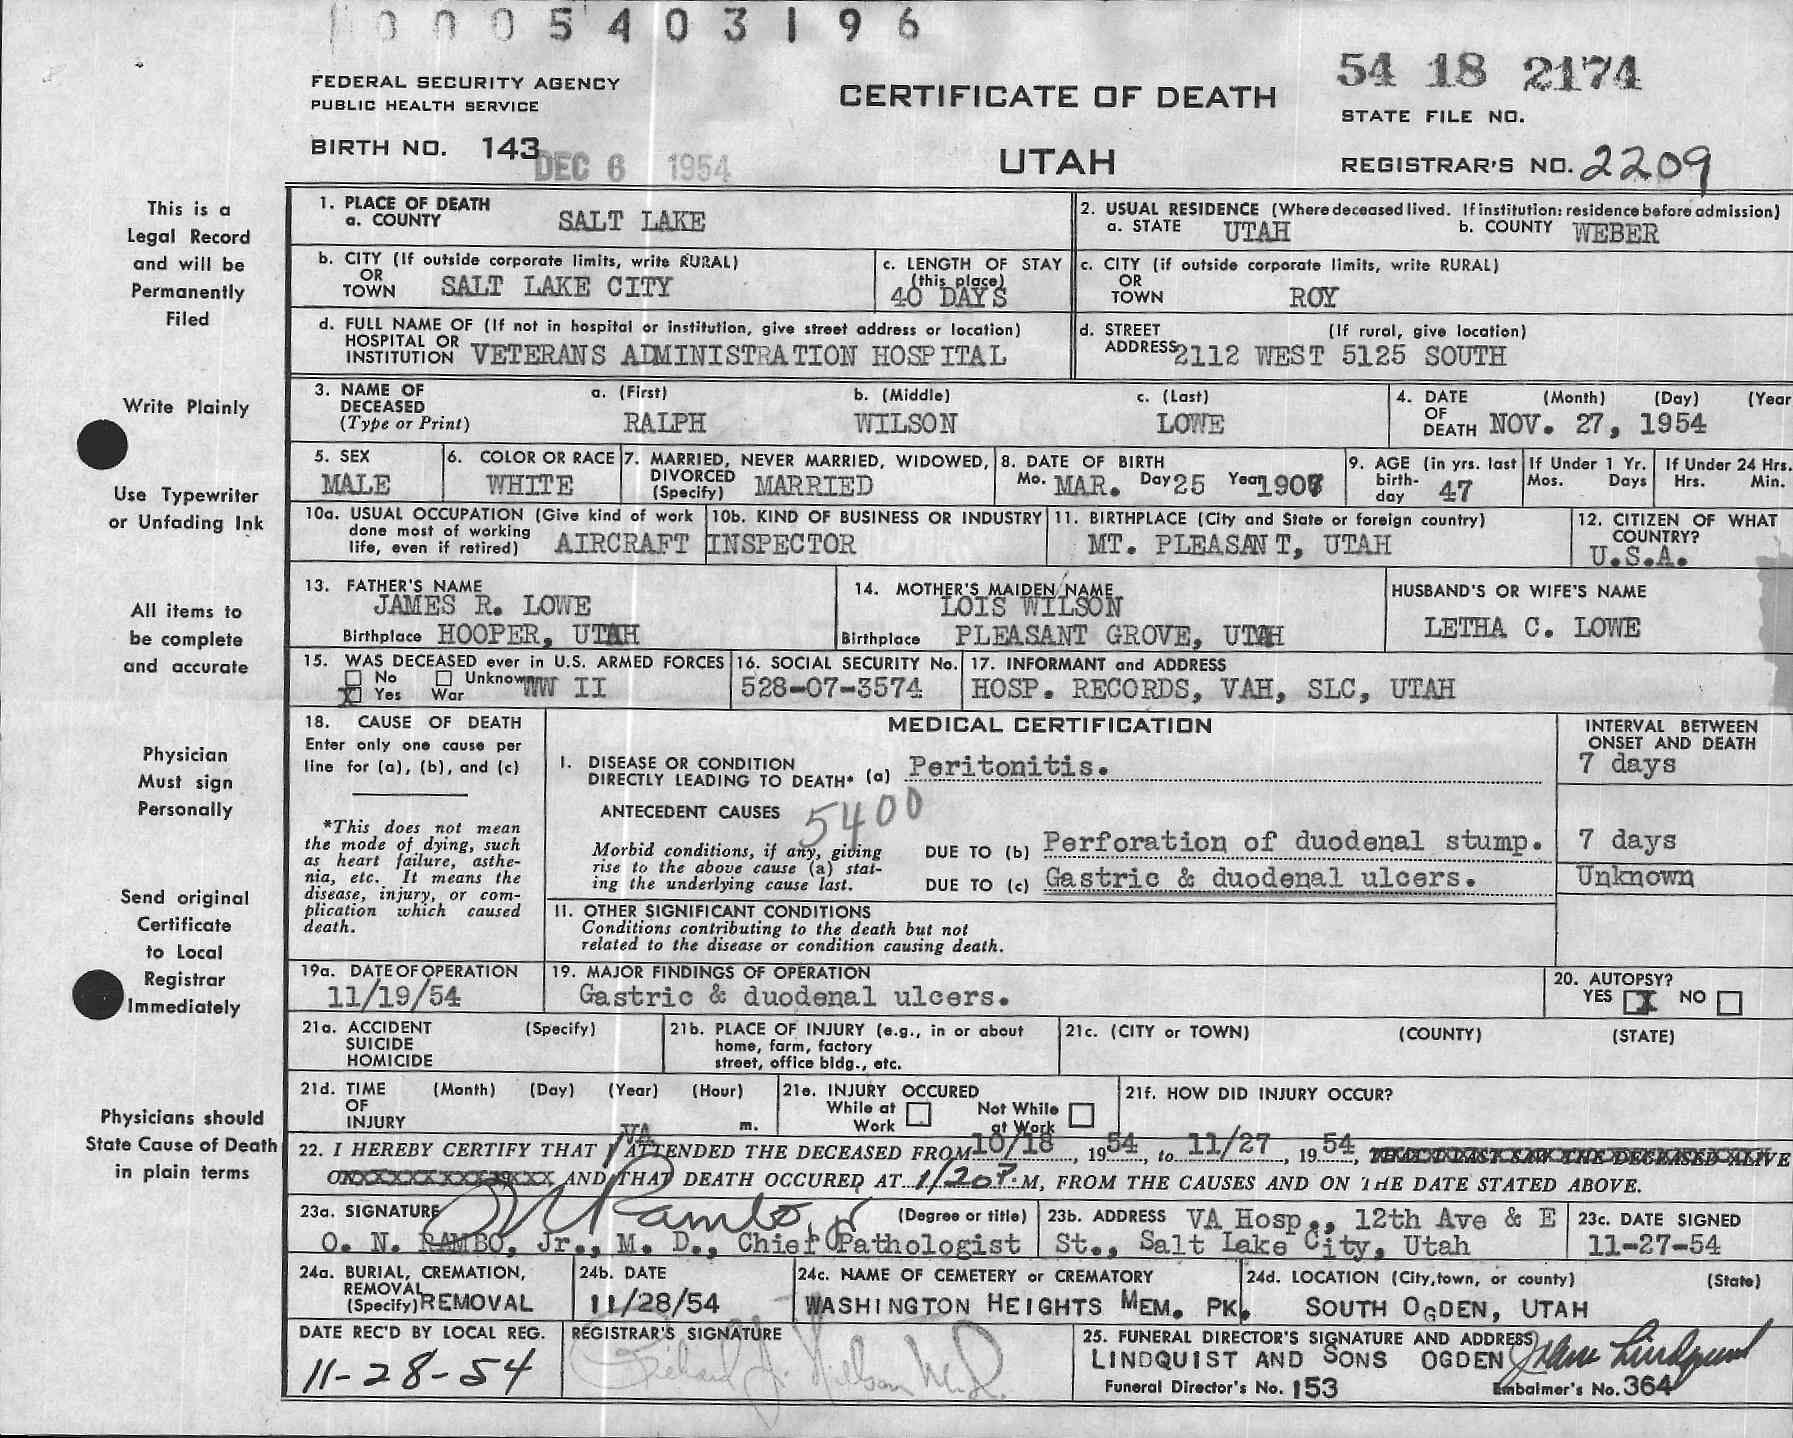 0005403196
54 18 2174
FEDERAL SECURITY AGENCY
PUBLIC HEALTH SERVICE
CERTIFICATE OF DEATH
STATE FILE NO.
BIRTH NO. 143
DEC 6 1954
UTAH
REGISTRAR'S NO. 2209
This is a
Legal Record
and will be
Permanently
Filed
Write Plainly
Use Typewriter
or Unfading Ink
All items to
be complete
and accurate
Physician
Must sign
Personally
Send original
Certificate
to Local
Registrar
Immediately
Physicians should
State Cause of Death
in plain terms
1. PLACE OF DEATH
a. COUNTY SALT LAKE
2. USUAL RESIDENCE (Where deceased lived. If institution: residence before admission)
a. STATE UTAH b. COUNTY WEBER
b. CITY (If outside corporate limits, write RURAL)
OR
TOWN SALT LAKE CITY
c. LENGTH OF STAY
(this place)
40 DAYS
c. CITY (if outside corporate limits, write RURAL)
OR
TOWN ROY
d. FULL NAME OF (If not in hospital or institution, give street address or location)
HOSPITAL OR
INSTITUTION VETERANS ADMINISTRATION HOSPITAL
d. STREET (If rural, give location)
ADDRESS 2112 WEST 5125 SOUTH
3. NAME OF
DECEASED
(Type or Print)
a. (First) b. (Middle) c. (Last)
RALPH WILSON LOWE
4. DATE (Month) (Day) (Year
OF
DEATH NOV. 27, 1954
5. SEX
MALE
6. COLOR OR RACE
WHITE
7. MARRIED, NEVER MARRIED, WIDOWED,
DIVORCED
(Specify) MARRIED
8. DATE OF BIRTH
Mo. MAR. Day 25 Year 1907
9. AGE (in yrs. last
birth-
day 47
If Under 1 Yr.
Mos. Days
If Under 24 Hrs.
Hrs. Min.
10a. USUAL OCCUPATION (Give kind of work
done most of working
life, even if retired) AIRCRAFT INSPECTOR
10b. KIND OF BUSINESS OR INDUSTRY
11. BIRTHPLACE (City and State or foreign country)
MT. PLEASANT, UTAH
12. CITIZEN OF WHAT
COUNTRY?
U.S.A.
13. FATHER'S NAME
JAMES R. LOWE
Birthplace HOOPER, UTAH
14. MOTHER'S MAIDEN NAME
LOIS WILSON
Birthplace PLEASANT GROVE, UTAH
HUSBAND'S OR WIFE'S NAME
LETHA C. LOWE
15. WAS DECEASED ever in U.S. ARMED FORCES
No Unknown
X Yes War WW II
16. SOCIAL SECURITY No.
528-07-3574
17. INFORMANT and ADDRESS
HOSP. RECORDS, VAH, SLC, UTAH
18. CAUSE OF DEATH
Enter only one cause per
line for (a), (b), and (c)
*This does not mean
the mode of dying, such
as heart failure, asthe-
nia, etc. It means the
disease, injury, or com-
plication which caused
death.
MEDICAL CERTIFICATION
INTERVAL BETWEEN
ONSET AND DEATH
I. DISEASE OR CONDITION
DIRECTLY LEADING TO DEATH* (a) Peritonitis. 7 days
ANTECEDENT CAUSES 5400
Morbid conditions, if any, giving
rise to the above cause (a) stat-
ing the underlying cause last.
DUE TO (b) Perforation of duodenal stump. 7 days
DUE TO (c) Gastric & duodenal ulcers. Unknown
II. OTHER SIGNIFICANT CONDITIONS
Conditions contributing to the death but not
related to the disease or condition causing death.
19a. DATE OF OPERATION
11/19/54
19. MAJOR FINDINGS OF OPERATION
Gastric & duodenal ulcers.
20. AUTOPSY?
YES X NO
21a. ACCIDENT (Specify)
SUICIDE
HOMICIDE
21b. PLACE OF INJURY (e.g., in or about
home, farm, factory
street, office bldg., etc.
21c. (CITY or TOWN) (COUNTY) (STATE)
21d. TIME (Month) (Day) (Year) (Hour)
OF
INJURY m.
21e. INJURY OCCURED
While at Work Not While at Work
21f. HOW DID INJURY OCCUR?
22. I HEREBY CERTIFY THAT I VA ATTENDED THE DECEASED FROM 10/18, 1954, to 11/27, 1954, THAT I LAST SAW THE DECEASED ALIVE
ON AND THAT DEATH OCCURED AT 1/20 P.M, FROM THE CAUSES AND ON THE DATE STATED ABOVE.
23a. SIGNATURE O N Rambo, Jr (Degree or title)
O. N. RAMBO, Jr., M. D., Chief Pathologist
23b. ADDRESS VA Hosp., 12th Ave & E
St., Salt Lake City, Utah
23c. DATE SIGNED
11-27-54
24a. BURIAL, CREMATION,
REMOVAL
(Specify) REMOVAL
24b. DATE
11/28/54
24c. NAME OF CEMETERY or CREMATORY
WASHINGTON HEIGHTS MEM. PK.
24d. LOCATION (City, town, or county) (State)
SOUTH OGDEN, UTAH
DATE REC'D BY LOCAL REG.
11-28-54
REGISTRAR'S SIGNATURE
Richard J. Nelson M.D.
25. FUNERAL DIRECTOR'S SIGNATURE AND ADDRESS
LINDQUIST AND SONS OGDEN Lindquist
Funeral Director's No. 153 Embalmer's No. 364